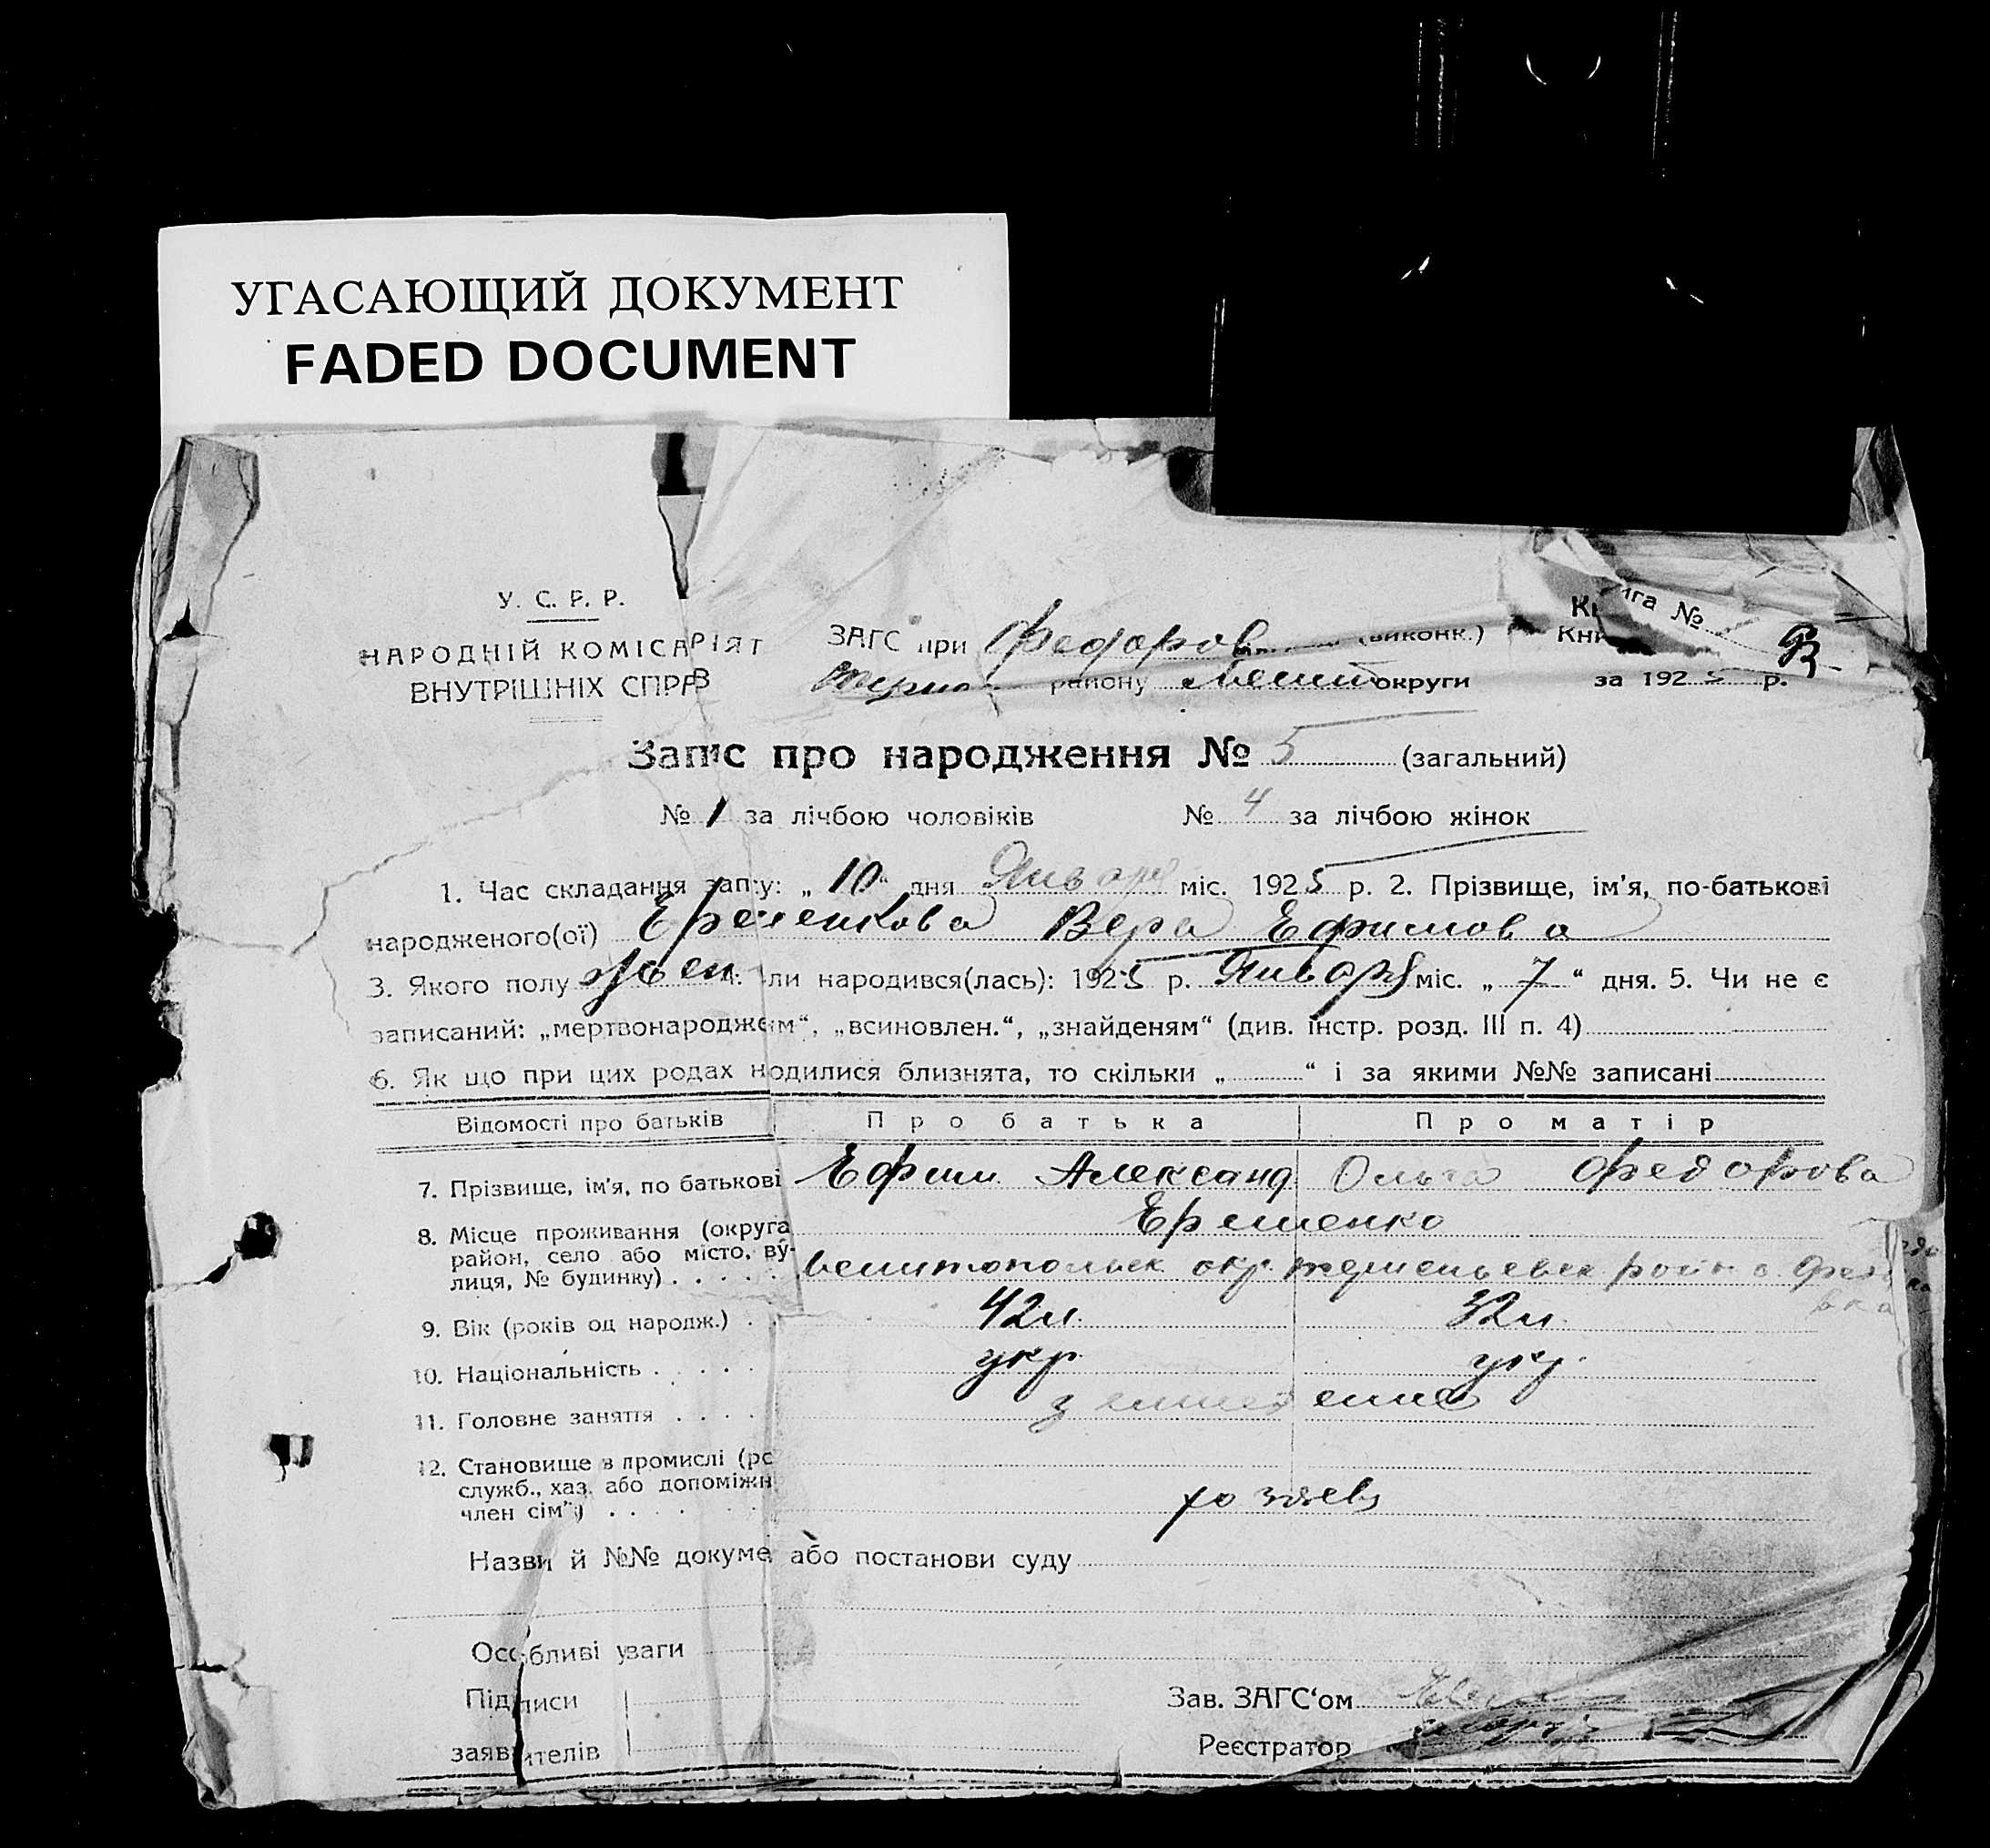 УГАСАЮЩИЙ ДОКУМЕНТ
FADED DOCUMENT
У. С. Р. Р.
НАРОДНІЙ КОМІСАРІЯТ
ВНУТРІШНІХ СПРАВ
ЗАГС при Федоров (виконк.)
району Мелит округи
Книга №
за 1925 р.
Запис про народження № 5 (загальний)
№ 1 за лічбою чоловіків № 4 за лічбою жінок
1. Час складання запису: „ 10 “ дня Январ міс. 1925 р. 2. Прізвище, ім’я, по-батькові
народженого(ої) Вера Ефимова
3. Якого полу жен 4. ли народився(лась): 1925 р. Января міс. „ 7 “ дня. 5. Чи не є
записаний: „мертвонародженим“, „всиновлен.“, „знайденям“ (див. інстр. розд. III п. 4)
6. Як що при цих родах нодилися близнята, то скільки „ “ і за якими №№ записані
Відомості про батьків Про батька Про матір
7. Прізвище, ім’я, по батькові Ефим Александ Ольга Федорова
Еременко
8. Місце проживання (округа
район, село або місто, ву-
лиця, № будинку) . . . . . Мелитопольск окр. район с.
вка
9. Вік (років од народж.) . . 42л. 32л.
10. Національність . . . . . укр. укр.
11. Головне заняття . . . .
12. Становище в промислі (ро
служб., хаз. або допоміжн
член сім’ї) . . . .
хозяев
Назви й №№ докуме або постанови суду
Особливі уваги
Підписи
заявителів
Зав. ЗАГС‘ом
Реєстратор